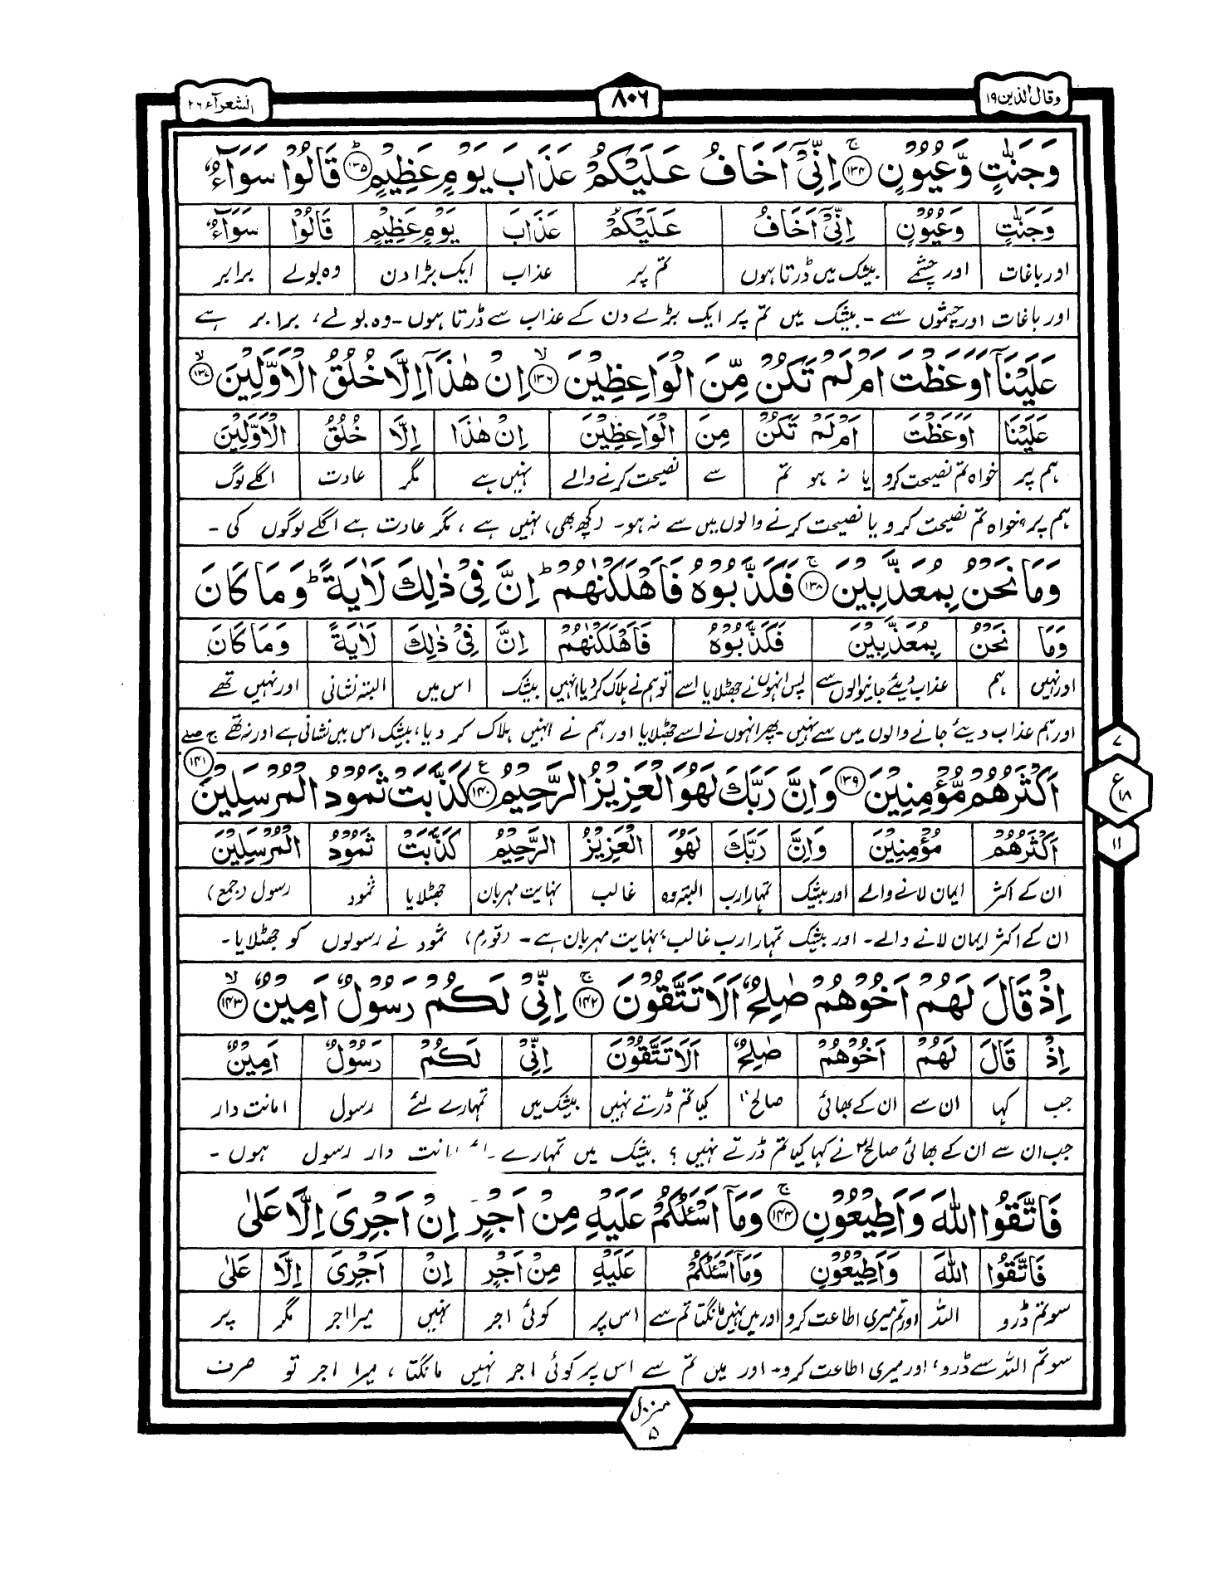 وقال الذين ۱۹
۸۰۶
الشعرآء ۲۶
وَجَنّٰتٍ وَّعُيُوۡنٍ ۚ‏﴿۱۳۴﴾ اِنِّىۡۤ اَخَافُ عَلَيۡكُمۡ عَذَابَ يَوۡمٍ عَظِيۡمٍؕ‏﴿۱۳۵﴾ قَالُوۡا سَوَآءٌ
وَجَنّٰتٍ وَعُيُوۡنٍ اِنِّىۡۤ اَخَافُ عَلَيۡكُمۡ عَذَابَ يَوۡمٍ عَظِيۡمٍ قَالُوۡا سَوَآءٌ
اور باغات اور چشمے بیشک میں ڈرتا ہوں تم پر عذاب ایک بڑا دن وہ بولے برابر
اور باغات اور چشموں سے - بیشک میں تم پر ایک بڑے دن کے عذاب سے ڈرتا ہوں - وہ بولے، برابر ہے
عَلَيۡنَاۤ اَوَعَظۡتَ اَمۡ لَمۡ تَكُنۡ مِّنَ الۡوٰعِظِيۡنَۙ‏﴿۱۳۶﴾ اِنۡ هٰذَاۤ اِلَّا خُلُقُ الۡاَوَّلِيۡنَۙ‏﴿۱۳۷﴾
عَلَيۡنَا اَوَعَظۡتَ اَمۡ لَمۡ تَكُنۡ مِنَ الۡوَاعِظِيۡنَ اِنۡ هٰذَا اِلَّا خُلُقُ الۡاَوَّلِيۡنَ
ہم پر خواہ تم نصیحت کرو یا نہ ہو تم سے نصیحت کرنے والے نہیں ہے مگر عادت اگلے لوگ
ہم پر خواہ تم نصیحت کرو یا نصیحت کرنے والوں میں سے نہ ہو - (کچھ بھی) نہیں ہے، مگر عادت ہے اگلے لوگوں کی -
وَمَا نَحۡنُ بِمُعَذَّبِيۡنَ​ۚ‏﴿۱۳۸﴾ فَكَذَّبُوۡهُ فَاَهۡلَكۡنٰهُمۡؕ اِنَّ فِىۡ ذٰلِكَ لَاٰيَةً​ ؕ وَمَا كَانَ
وَمَا نَحۡنُ بِمُعَذَّبِيۡنَ فَكَذَّبُوۡهُ فَاَهۡلَكۡنٰهُمۡ اِنَّ فِىۡ ذٰلِكَ لَاٰيَةً وَمَا كَانَ
اور نہیں ہم عذاب دیئے جانیوالوں سے پس انہوں نے جھٹلایا اسے تو ہم نے ہلاک کردیا انہیں بیشک اس میں البتہ نشانی اور نہیں تھے
اور ہم عذاب دیئے جانے والوں میں سے نہیں - پھر انہوں نے اسے جھٹلایا اور ہم نے انہیں ہلاک کر دیا، بیشک اس میں نشانی ہے اور نہ تھے
اَكۡثَرُهُمۡ مُّؤۡمِنِيۡنَ‏﴿۱۳۹﴾ وَاِنَّ رَبَّكَ لَهُوَ الۡعَزِيۡزُ الرَّحِيۡمُ‏﴿۱۴۰﴾ كَذَّبَتۡ ثَمُوۡدُ الۡمُرۡسَلِيۡنَ ﴿۱۴۱﴾
۷
ع
۱۸
۱۱
اَكۡثَرُهُمۡ مُؤۡمِنِيۡنَ وَاِنَّ رَبَّكَ لَهُوَ الۡعَزِيۡزُ الرَّحِيۡمُ كَذَّبَتۡ ثَمُوۡدُ الۡمُرۡسَلِيۡنَ
ان کے اکثر ایمان لانے والے اور بیشک تمہارا رب البتہ وہ غالب نہایت مہربان جھٹلایا ثمود رسول (جمع)
ان کے اکثر ایمان لانے والے - اور بیشک تمہارا رب غالب، نہایت مہربان ہے - (قوم) ثمود نے رسولوں کو جھٹلایا -
اِذۡ قَالَ لَهُمۡ اَخُوۡهُمۡ صٰلِحٌ اَلَا تَتَّقُوۡنَ​ۚ‏﴿۱۴۲﴾ اِنِّىۡ لَـكُمۡ رَسُوۡلٌ اَمِيۡنٌۙ‏﴿۱۴۳﴾
اِذۡ قَالَ لَهُمۡ اَخُوۡهُمۡ صٰلِحٌ اَلَا تَتَّقُوۡنَ اِنِّىۡ لَكُمۡ رَسُوۡلٌ اَمِيۡنٌ
جب کہا ان سے ان کے بھائی صالحؑ کیا تم ڈرتے نہیں بیشک میں تمہارے لئے رسول امانت دار
جب ان سے ان کے بھائی صالحؑ نے کہا کیا تم ڈرتے نہیں؟ بیشک میں تمہارے دار رسول ہوں -
فَاتَّقُوا اللّٰهَ وَاَطِيۡعُوۡنِ​ۚ‏﴿۱۴۴﴾ وَمَاۤ اَسۡئَلُكُمۡ عَلَيۡهِ مِنۡ اَجۡرٍ​ اِنۡ اَجۡرِىَ اِلَّا عَلٰى
فَاتَّقُوا اللّٰهَ وَاَطِيۡعُوۡنِ وَمَاۤ اَسۡئَلُكُمۡ عَلَيۡهِ مِنۡ اَجۡرٍ اِنۡ اَجۡرِىَ اِلَّا عَلٰى
سو تم ڈرو اللہ اور تم میری اطاعت کرو اور میں نہیں مانگتا تم سے اس پر کوئی اجر نہیں میرا اجر مگر پر
سو تم اللہ سے ڈرو، اور میری اطاعت کرو - اور میں تم سے اس پر کوئی اجر نہیں مانگتا، میرا اجر تو صرف
منزل
۵